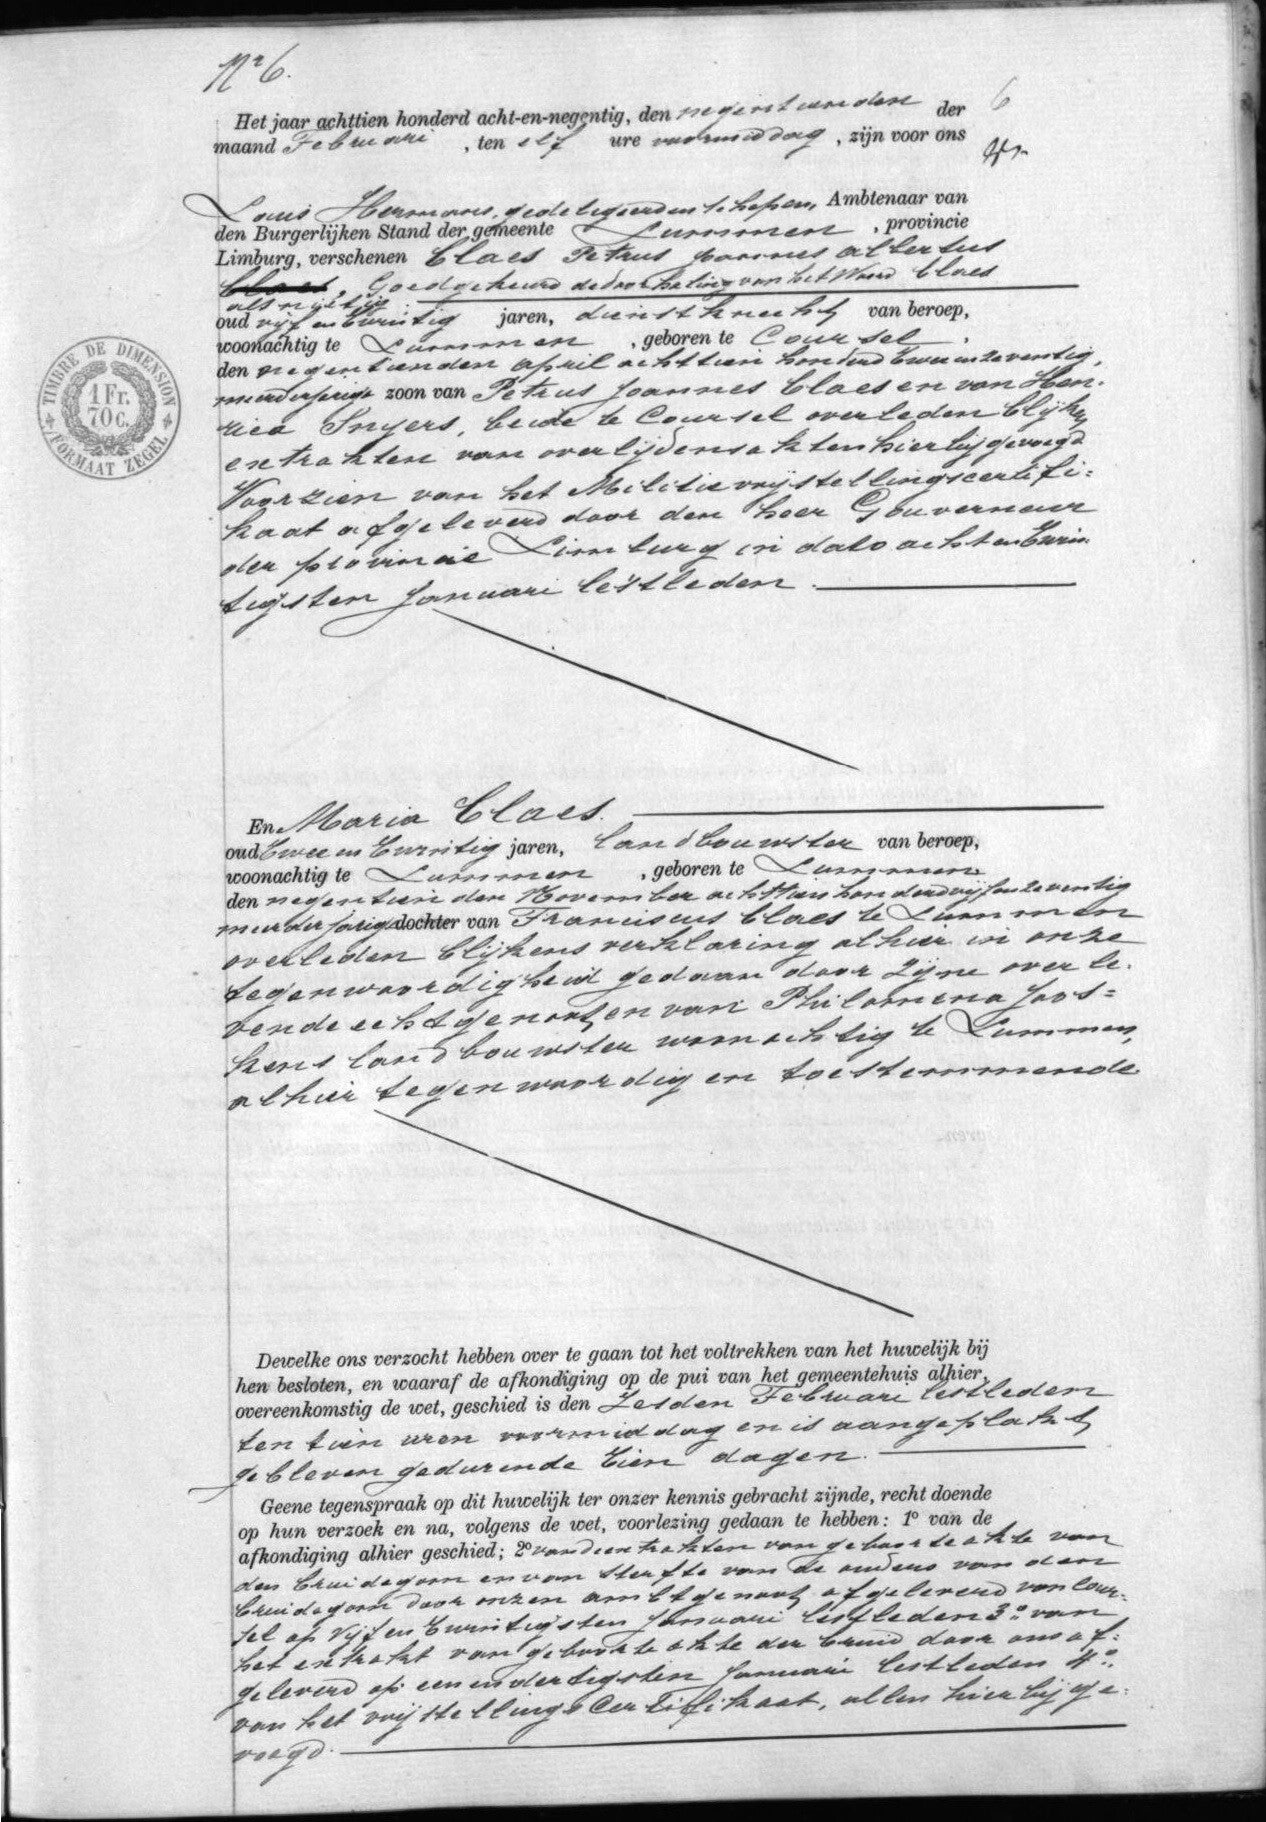 Nr 6.
Het jaar achttien honderd acht-en-negentig, den negentienden der
6
maand Februari , ten elf ure voormiddag , zijn voor ons
Louis Hermans, gedelegeerden schepen, Ambtenaar van
den Burgerlijken Stand der gemeente Lummen , provincie
Limburg, verschenen Claes Petrus Joannes Albertus
Claes, Goedgekeurd de doorhaling van het Woord Claes
als nietig.
oud vijf en twintig jaren, dienstknecht van beroep,
woonachtig te Lummen , geboren te Coursel ,
den negentienden april achttien honderd twee en zeventig,
meerderjarige zoon van Petrus Joannes Claes en van Hen-
rica Snyers, beide te Coursel overleden blijkens
extrakten van overlijdensakten hierbijgevoegd
Voorzien van het Militievrijstellingscertifi=
kaat afgeleverd door den heer Gouverneur
der provincie Limburg in dato achtentwin
tigsten Januari lestleden.
TIMBRE DE DIMENSION
1 Fr.
70 c.
FORMAAT ZEGEL
En Maria Claes.
oud twee en twintig jaren, landbouwster van beroep,
woonachtig te Lummen , geboren te Lummen
den negentienden November achttienhonderdvijfenzeventig
meerderjarige dochter van Franciscus Claes te Lummen
overleden blijkens verklaring alhier in onze
tegenwoordigheid gedaan door zijne overle-
vende echtgenoot, en van Philomena Joos=
kens landbouwster woonachtig te Lummen,
alhier tegenwoordig en toestemmende
Dewelke ons verzocht hebben over te gaan tot het voltrekken van het huwelijk bij
hen besloten, en waaraf de afkondiging op de pui van het gemeentehuis alhier,
overeenkomstig de wet, geschied is den Zesden Februari lestleden
ten tien uren voormiddag en is aangeplakt
gebleven gedurende tien dagen.
Geene tegenspraak op dit huwelijk ter onzer kennis gebracht zijnde, recht doende
op hun verzoek en na, volgens de wet, voorlezing gedaan te hebben: 1º van de
afkondiging alhier geschied; 2º van de extrakten van geboorteakte van
den bruidegom en van sterfte van de ouders van den
bruidegom door onzen ambtgenoot afgeleverd van Cour-
sel op vijf en twintigsten Januari lestleden 3º van
het extrakt van geboorte akte der bruid door ons af-
geleverd op eenendertigsten Januari lestleden 4º.
van het vrijstellings Certifikaat, allen hierbijge-
voegd.